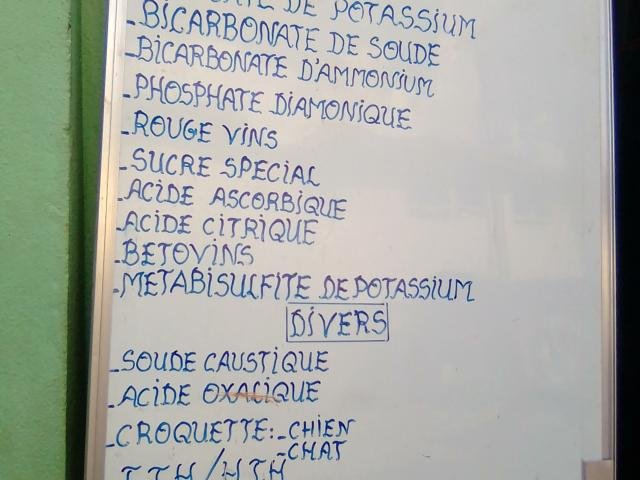 DE POTASSIUM
-BICARBONATE DE SOUDE
-BICARBONATE D'AMMONIUM
-PHOSPHATE DIAMONIQUE
-ROUGE VINS
-SUCRE SPECIAL
-ACIDE ASCORBIQUE
-ACIDE CITRIQUE
-BETOVINS
-METABISULFITE DE POTASSIUM
DIVERS
-SOUDE CAUSTIQUE
-ACIDE OXALIQUE
-CROQUETTE:-CHIEN
-CHAT
TTH/HTH